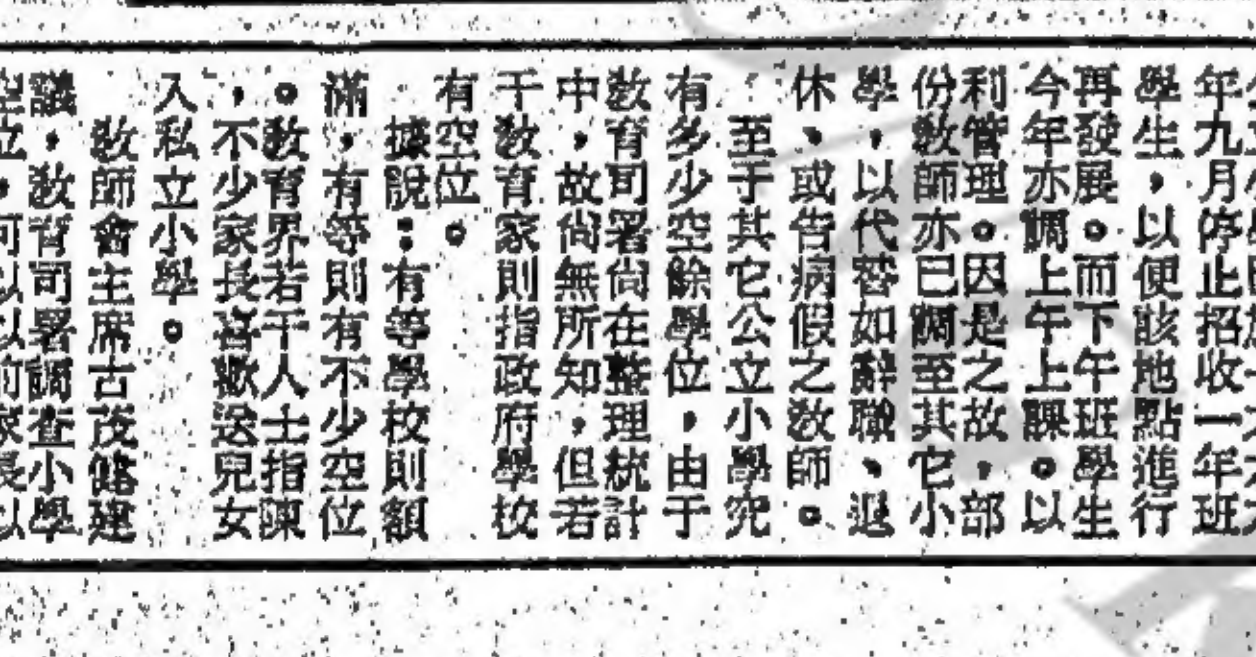 年九月停止招收一年班
學生，以便該地點進行
再發展。而下午班學生
今年亦調上午上課。以
利管理。因是之故，部
份教師亦已調至其它小
學，以代替如辭職、退
休、或告病假之教師。
至于其它公立小學究
有多少空餘學位，由于
教育司署尚在整理統計
中，故尚無所知，但若
干教育家則指政府學校
有空位。
據說：有等學校則額
滿，有等則有不少空位
。教育界若干人士指陳
，不少家長喜歡送兒女
入私立小學。
教師會主席古茂健建
議，教育司署調查小學